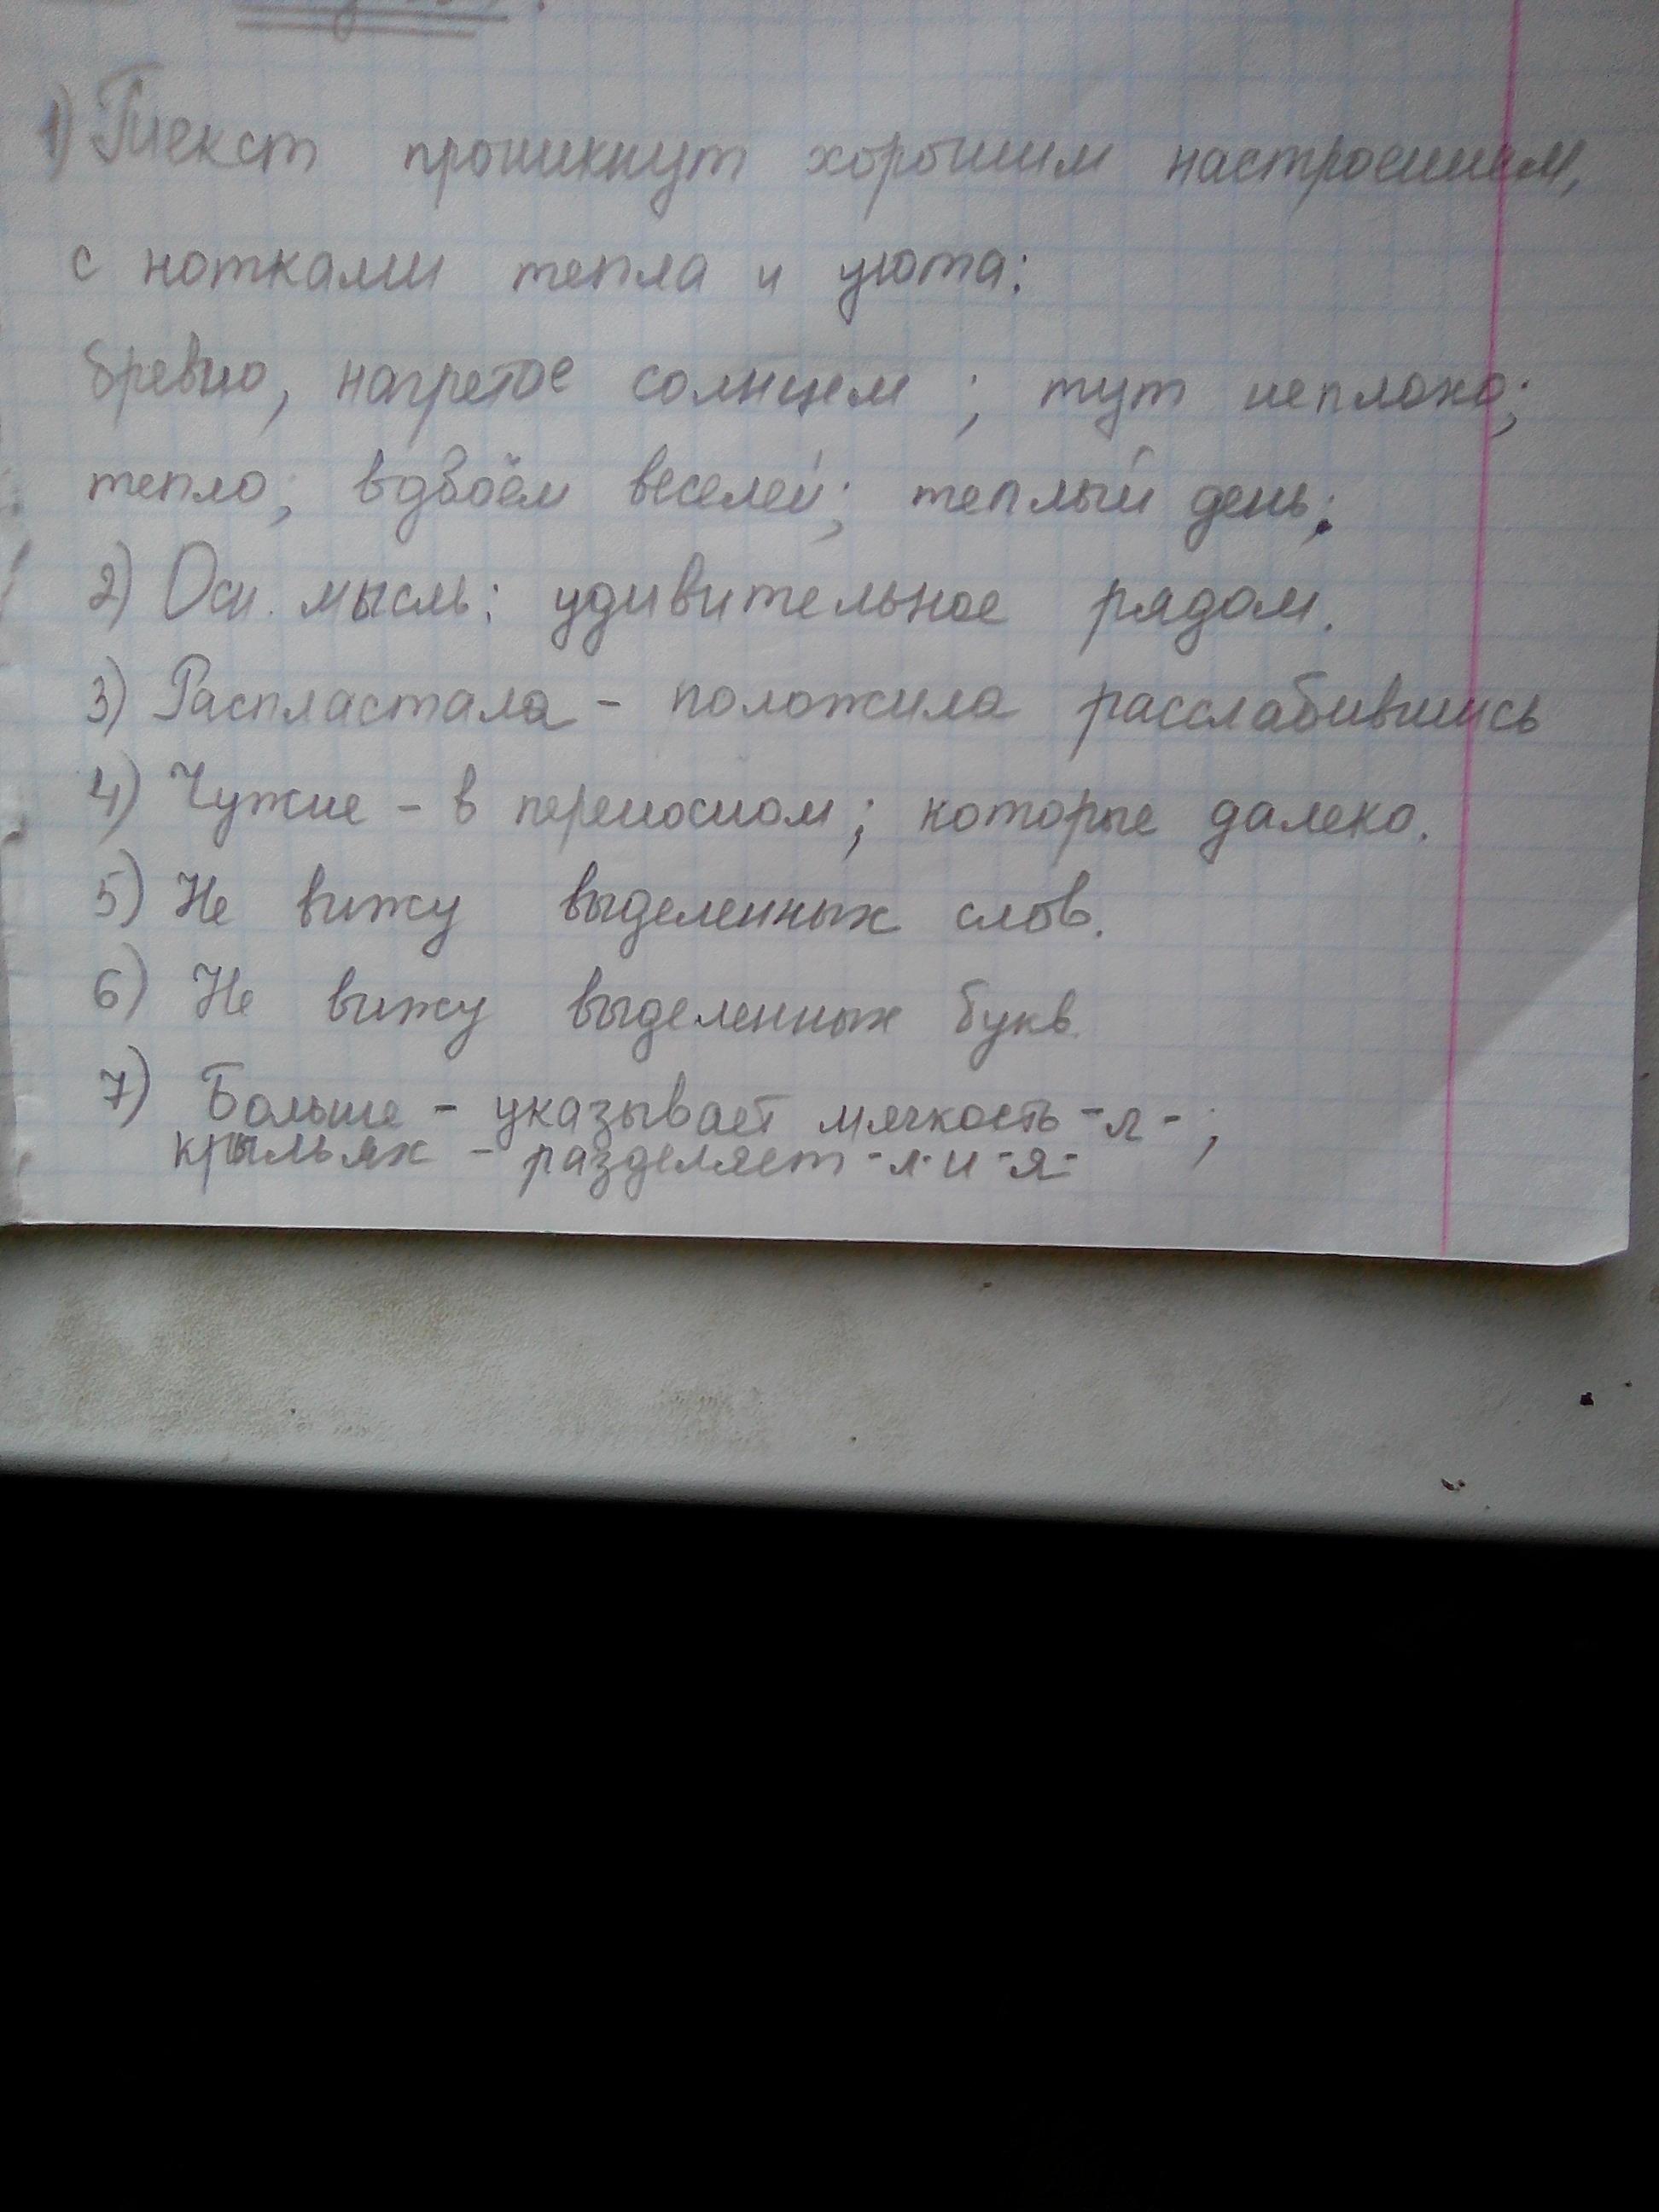 1) Текст проникнут хорошим настроением,
с нотками тепла и уюта:
бревно, нагретое солнцем; тут неплохо;
тепло; вдвоём веселей; теплый день;
2) Осн. мысль: удивительное рядом.
3) Распластала - положила расслабившись
4) Чужие - в переносном; которые далеко.
5) Не вижу выделенных слов.
6) Не вижу выделенных букв.
7) Больше - указывает мягкость -л-;
крыльях - разделяет -л- и -я-